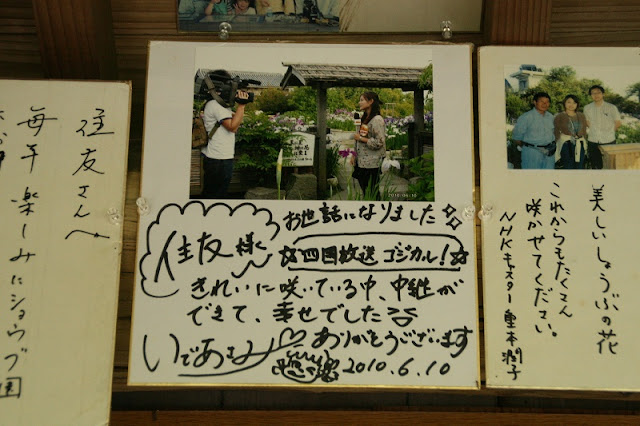 住友さんへ
毎年楽しみにショウブ園
2010.06.10
お世話になりました
住友様
四国放送 ゴジカル!
きれいに咲いている中、中継が
できて、幸せでした
いであみ
ありがとうございます
2010.6.10
美しいしょうぶの花
これからもたくさん
咲かせてください。
NHKキャスター